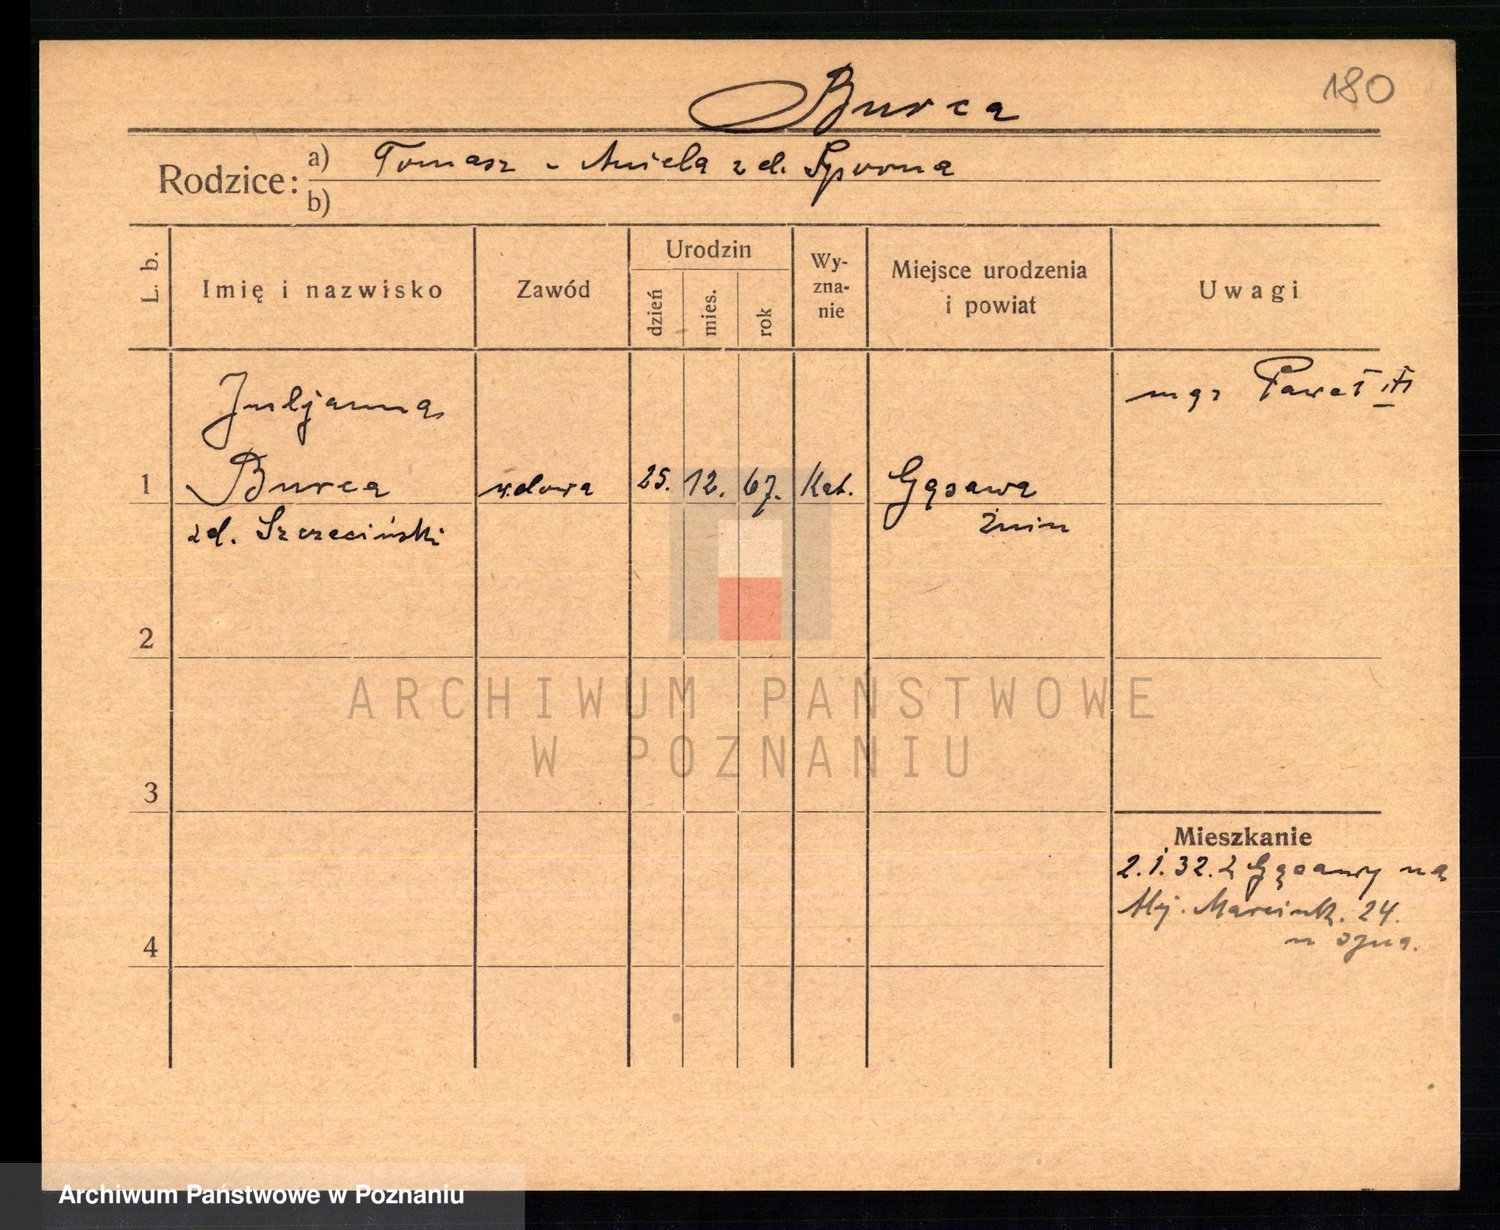 180
Burca
Rodzice:
a) Tomasz - Aniela z d. Sporna
b)
L. b.
Imię i nazwisko
Zawód
Urodzin
dzień
mies.
rok
Wy-
zna-
nie
Miejsce urodzenia
i powiat
Uwagi
Juljanna
mgr Paweł
1 Burca wdowa 25. 12. 67. Kat. Gąsawa
zd. Szczeciński
Żnin
2
3
4
Mieszkanie
2.1.32. z Gąsawy na
Alej. Marcink. 24.
u syna.
ARCHIWUM PAŃSTWOWE
W POZNANIU
Archiwum Państwowe w Poznaniu